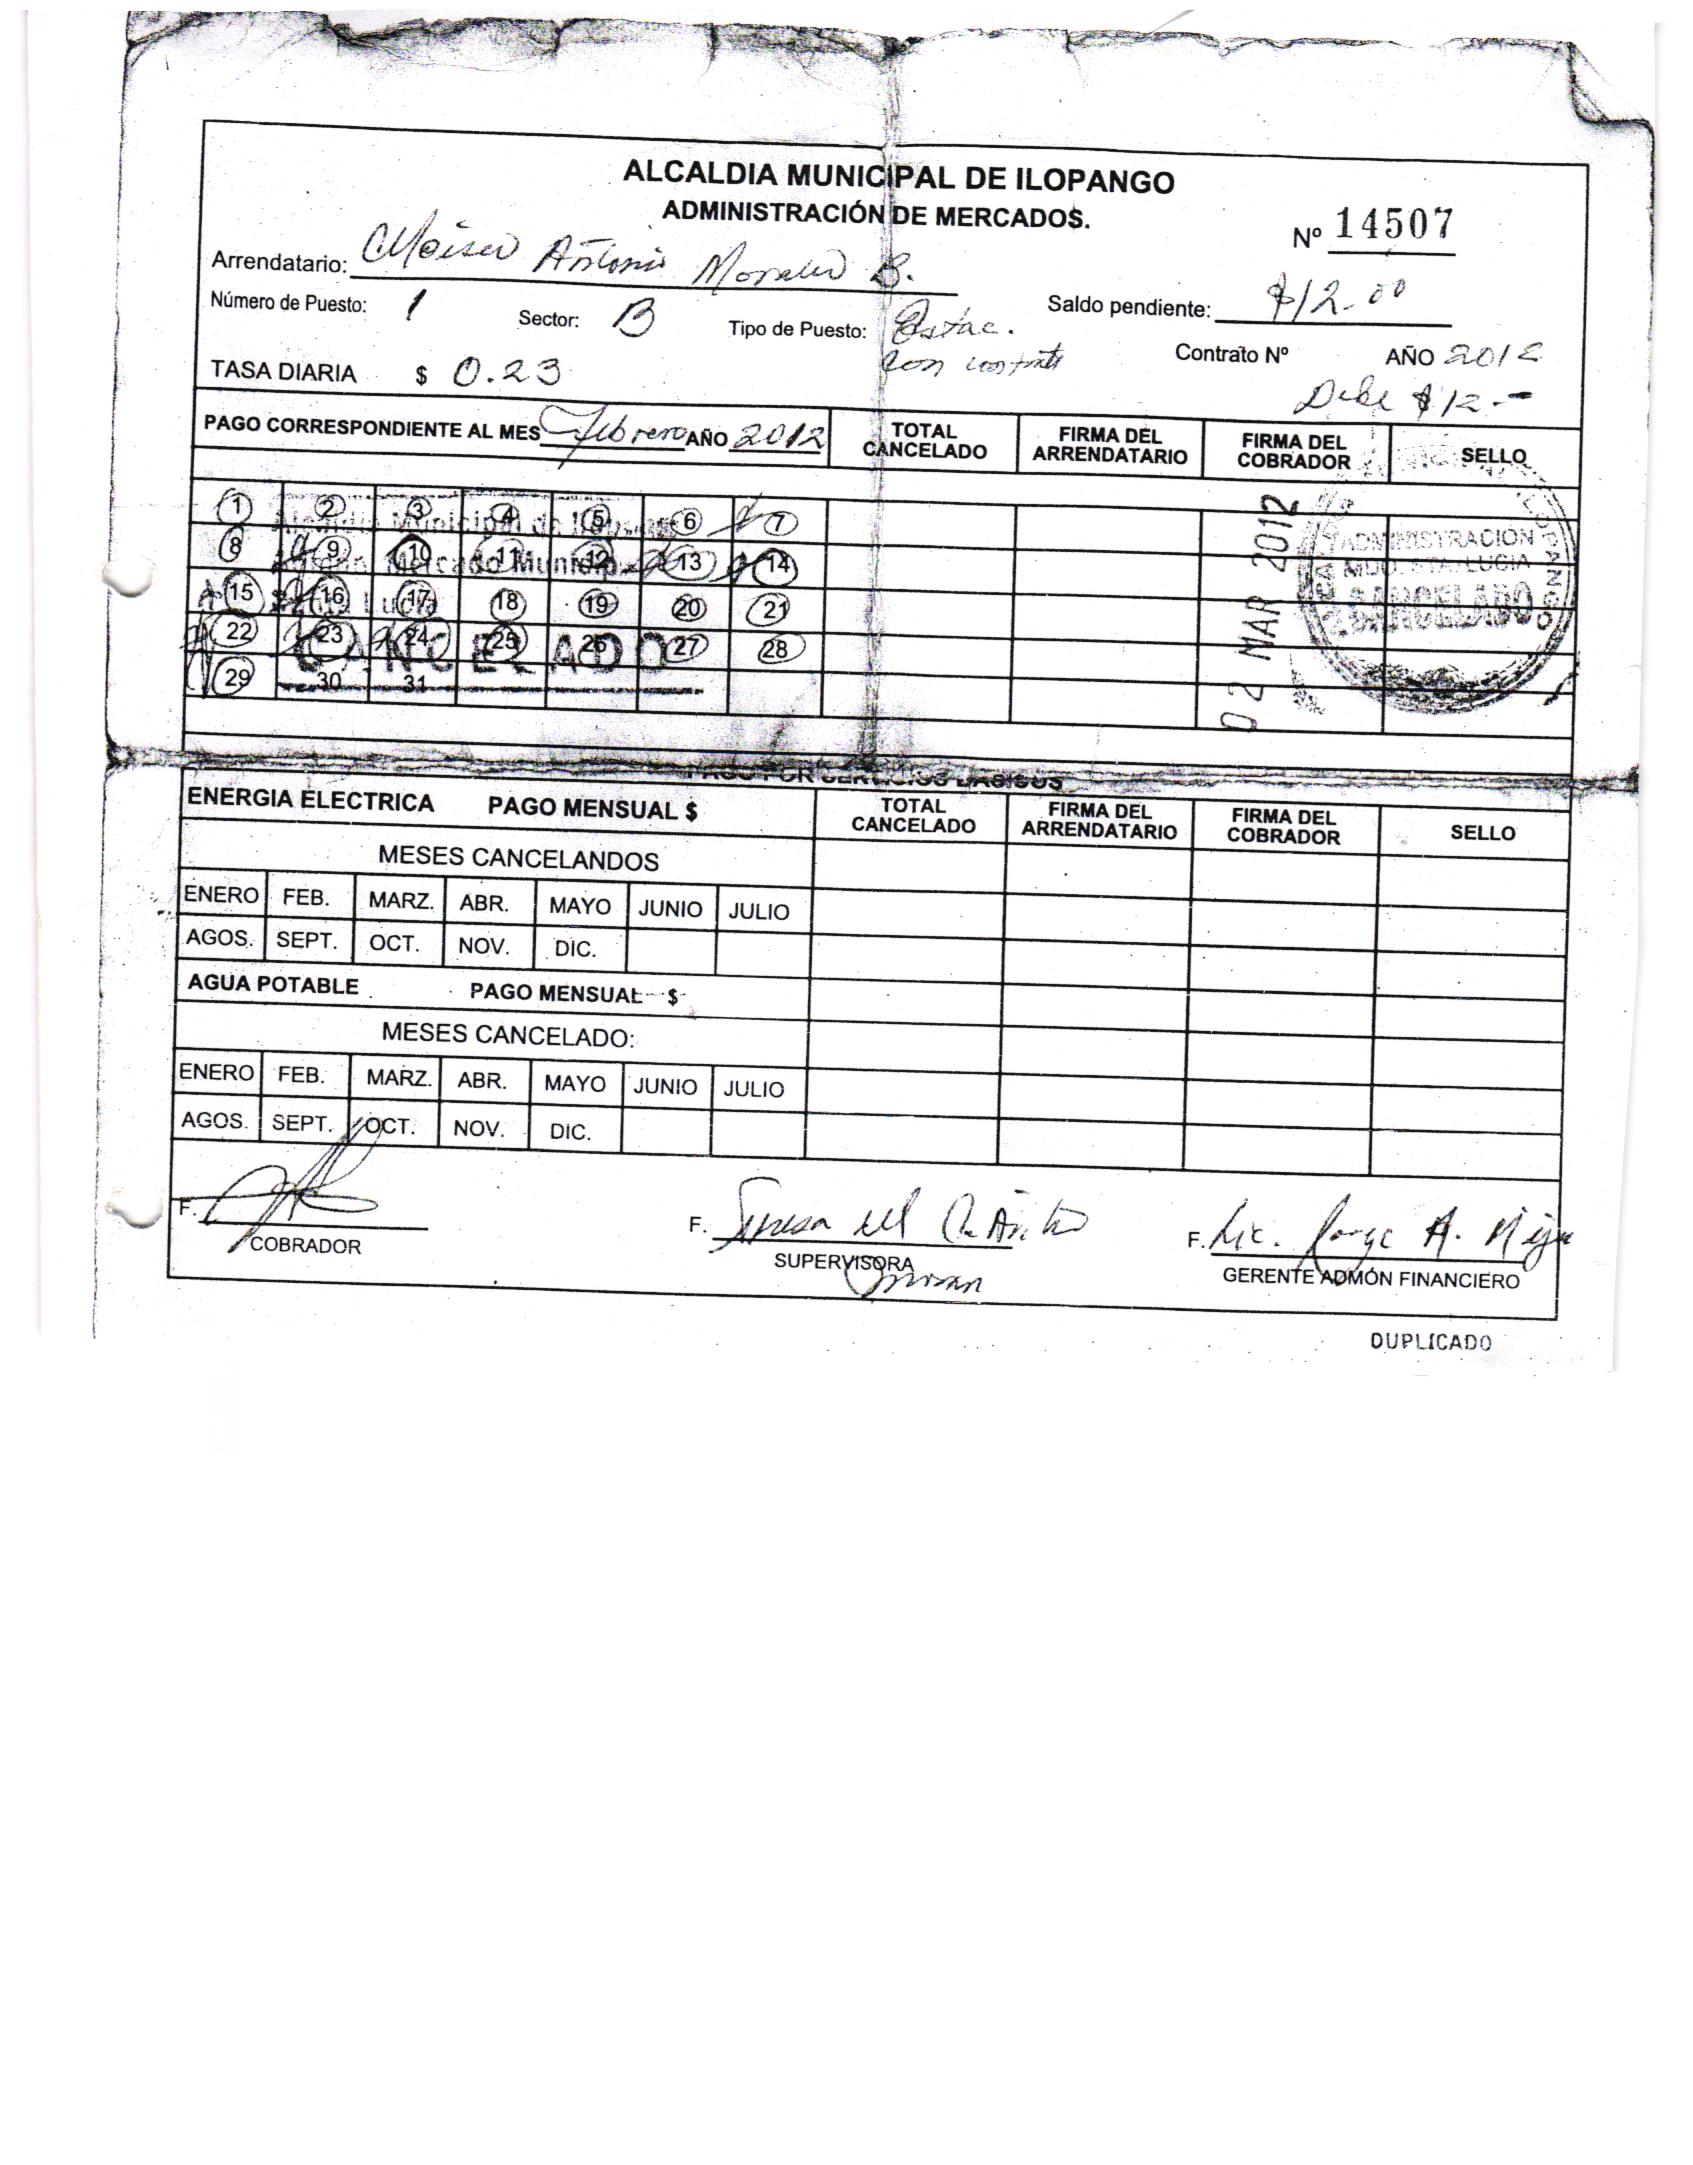 ALCALDIA MUNICIPAL DE ILOPANGO
ADMINISTRACIÓN DE MERCADOS.
Nº 14507
Arrendatario: Moises Antonio Morales B.
Número de Puesto: 1 Sector: B Tipo de Puesto: Estac. con contrato
Saldo pendiente: $12.00
Contrato Nº AÑO 2012
TASA DIARIA $ 0.23
Debe $12.-
PAGO CORRESPONDIENTE AL MES Febrero AÑO 2012 TOTAL CANCELADO FIRMA DEL ARRENDATARIO FIRMA DEL COBRADOR SELLO
1 2 3 4 5 6 7
8 9 10 11 12 13 14
15 16 17 18 19 20 21
22 23 24 25 26 27 28
29 30 31
Alcaldia Municipal de Ilopango
Admon. Mercado Municipal
Santa Lucia
CANCELADO
02 MAR 2012
ILOPANGO
ADMINISTRACION
MDO. STA. LUCIA
CANCELADO
PAGO POR SERVICIOS BASICOS
ENERGIA ELECTRICA PAGO MENSUAL $ TOTAL CANCELADO FIRMA DEL ARRENDATARIO FIRMA DEL COBRADOR SELLO
MESES CANCELANDOS
ENERO FEB. MARZ. ABR. MAYO JUNIO JULIO
AGOS. SEPT. OCT. NOV. DIC.
AGUA POTABLE PAGO MENSUAL $
MESES CANCELADO:
ENERO FEB. MARZ. ABR. MAYO JUNIO JULIO
AGOS. SEPT. OCT. NOV. DIC.
F. F. Teresa del F. Lic. Jorge A.
COBRADOR SUPERVISORA GERENTE ADMÓN FINANCIERO
DUPLICADO